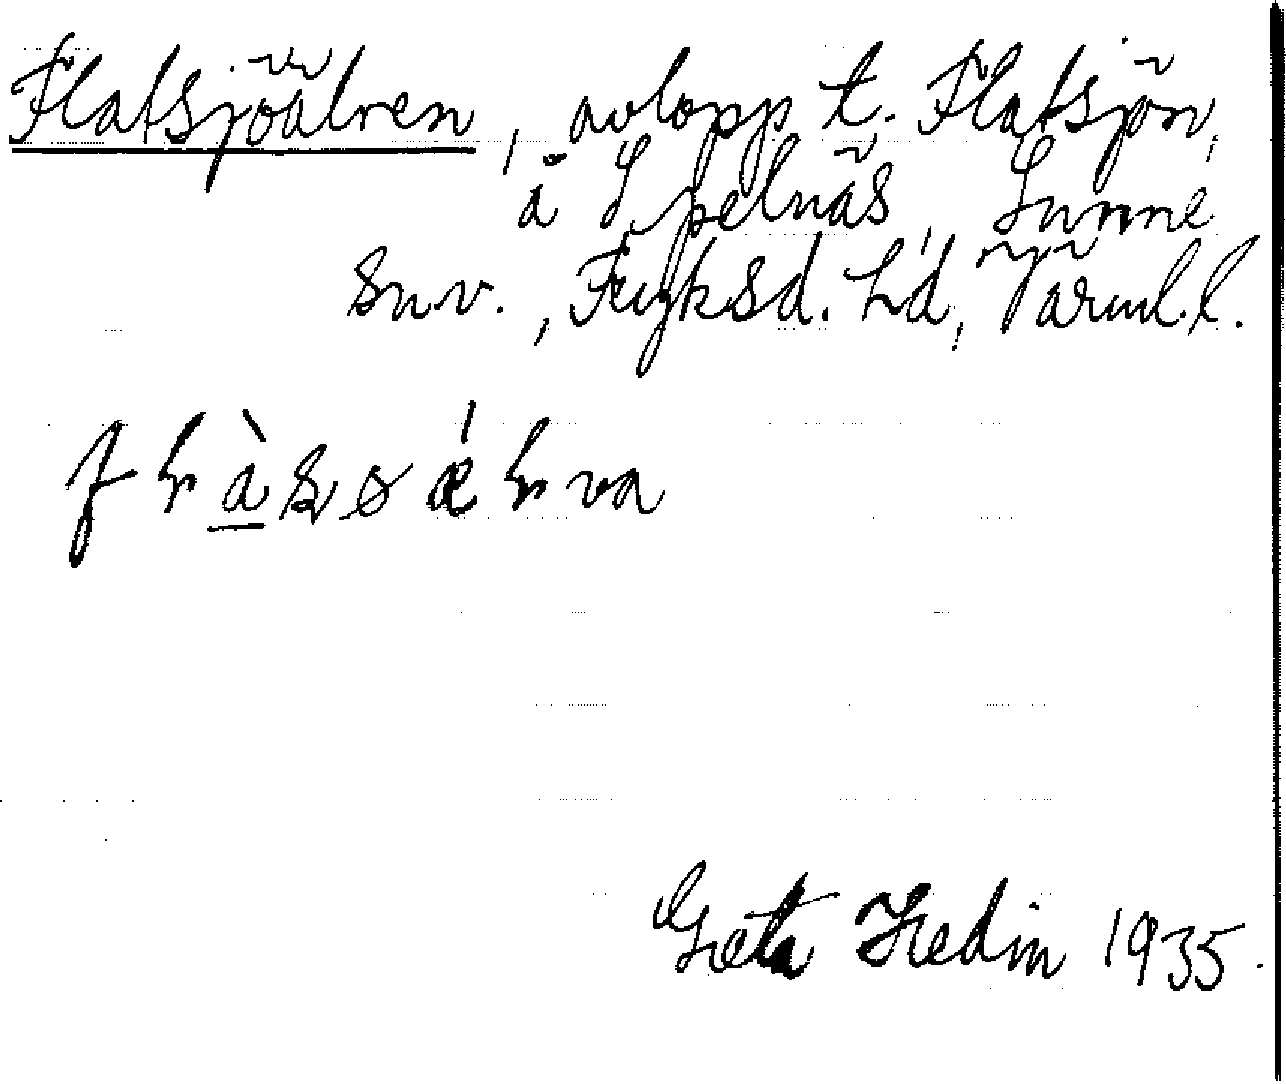 Flatsjöälven, avlopp t. Flatsjön,
å Spelnäs, Sunne
snv., Fryksd. hd, Värml. l.
Greta Hedin 1935.